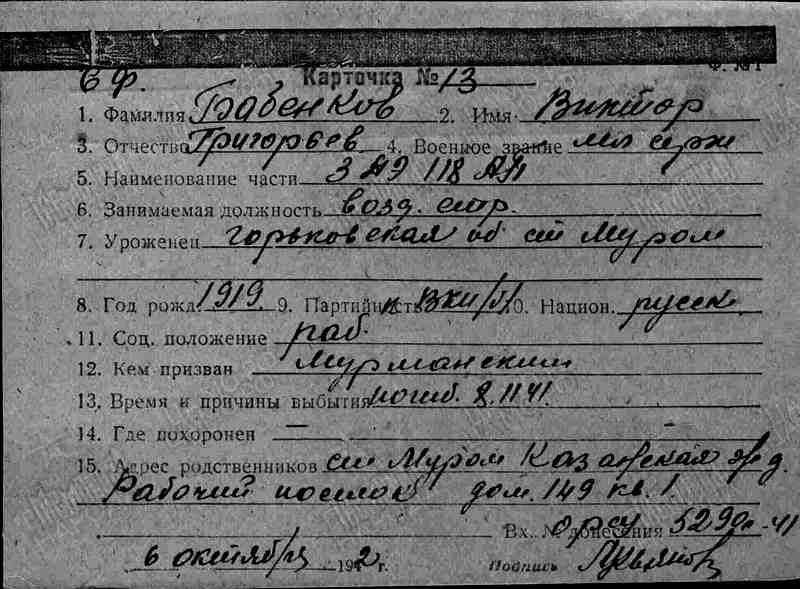 С Ф. Карточка № 13 Ф. №1
1. Фамилия Бабенков 2. Имя Виктор
3. Отчество Григорьев 4. Военное звание мл серж
5. Наименование части 3 АЭ 118 АП
6. Занимаемая должность возд. стр.
7. Уроженец горьковская об ст Муром
8. Год рожд. 1919. 9. Партийность к ВКП/б/ 10. Национ. русск.
11. Соц. положение раб.
12. Кем призван Мурманским
13. Время и причины выбытия погиб. 8.11 41.
14. Где похоронен —
15. Адрес родственников ст Муром Казанская жд
Рабочий поселок дом. 149 кв. 1.
Вх. № донесения 5290
6 октября 1942 г. Подпись